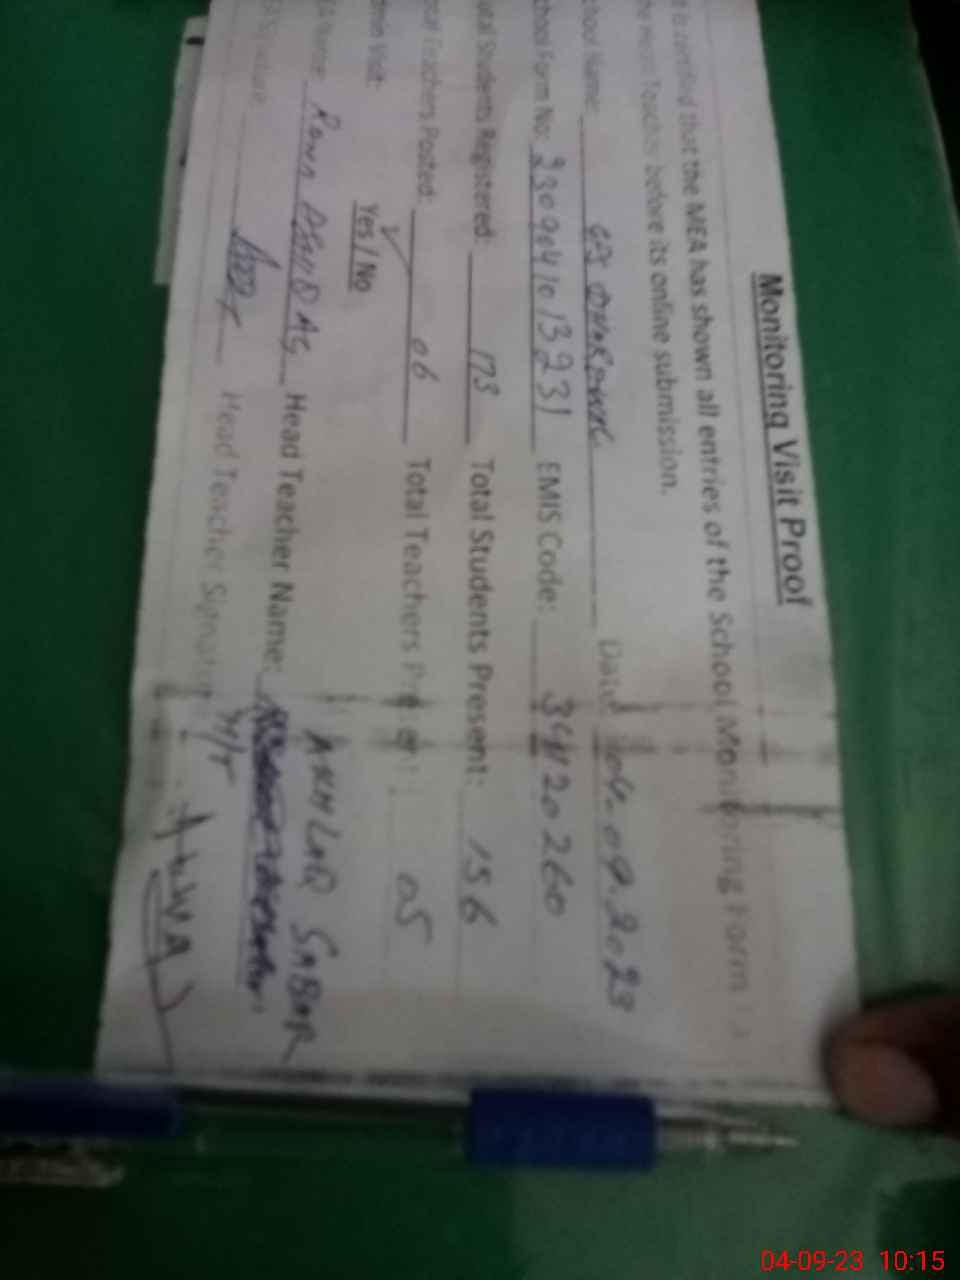 Monitoring Visit Proof
t is certified that the MEA has shown all entries of the School Monitoring Form to
he Head Teacher before its online submission.
chool Name: Date: 04.09.2023
chool Form No: 2309041013931 EMIS Code: 34120260
otal Students Registered: 173 Total Students Present: 156
otal Teachers Posted: 06 Total Teachers Present: 05
dmin Visit: Yes / No
EA Name: Head Teacher Name: AKHLAQ SABAR
Head Teacher Signature
04-09-23 10:15